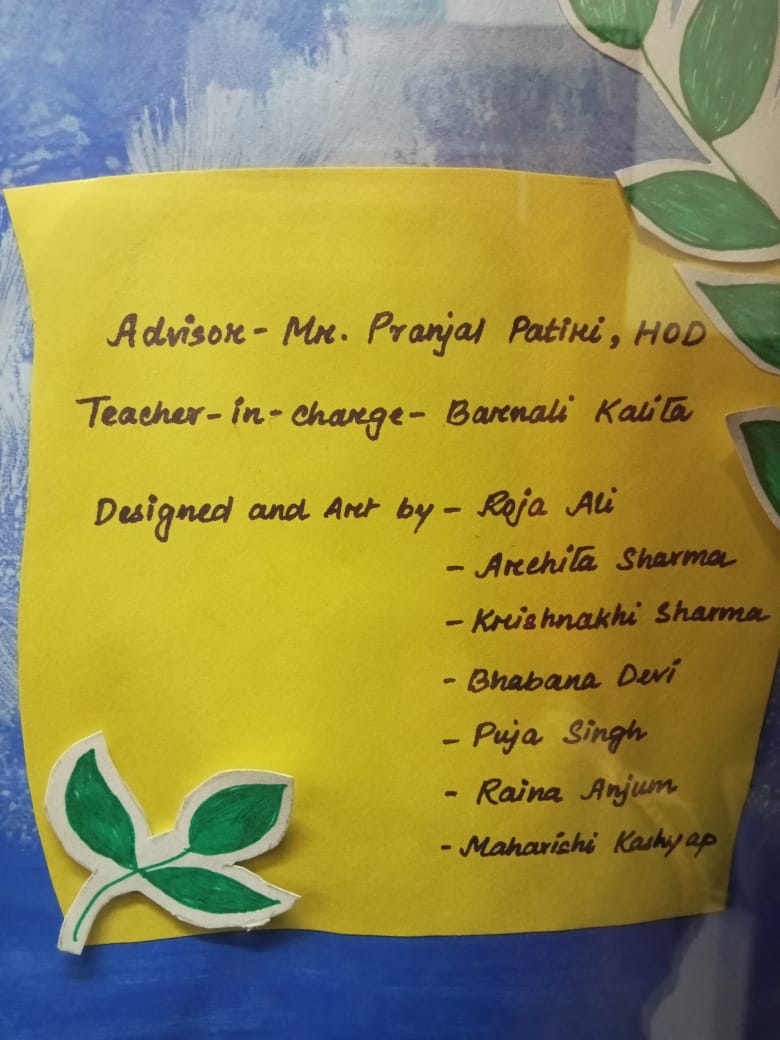 Advisor - Mr. Pranjal Patiri, HOD
Teacher-in-charge - Barnali Kalita
Designed and Art by - Roja Ali
- Archita Sharma
- Krishnakhi Sharma
- Bhabana Devi
- Puja Singh
- Raina Anjum
- Maharishi Kashyap